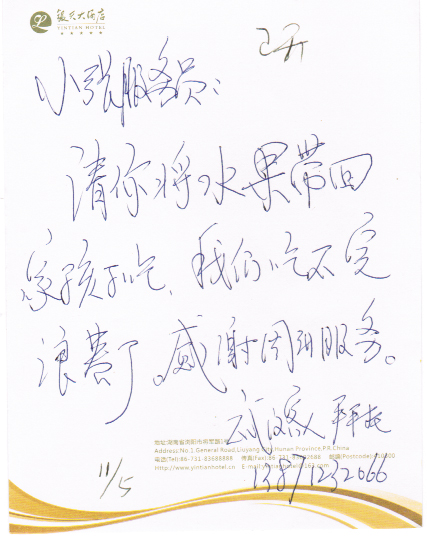 银天大酒店
YINTIAN HOTEL
已开
小张服务员：
请你将水果带回
家孩子吃，我们吃不完
浪费了。感谢周到服务。
拜托
地址:湖南省浏阳市将军路1号
Address:No.1 General Road,Liuyang City,Hunan Province,P.R.China
电话(Tel):86-731-83688888 传真(Fax):86-731-83682688 邮编(Postcode):410300
Http://www.yintianhotel.cn E-mail:yintianhotel@163.com
11/5